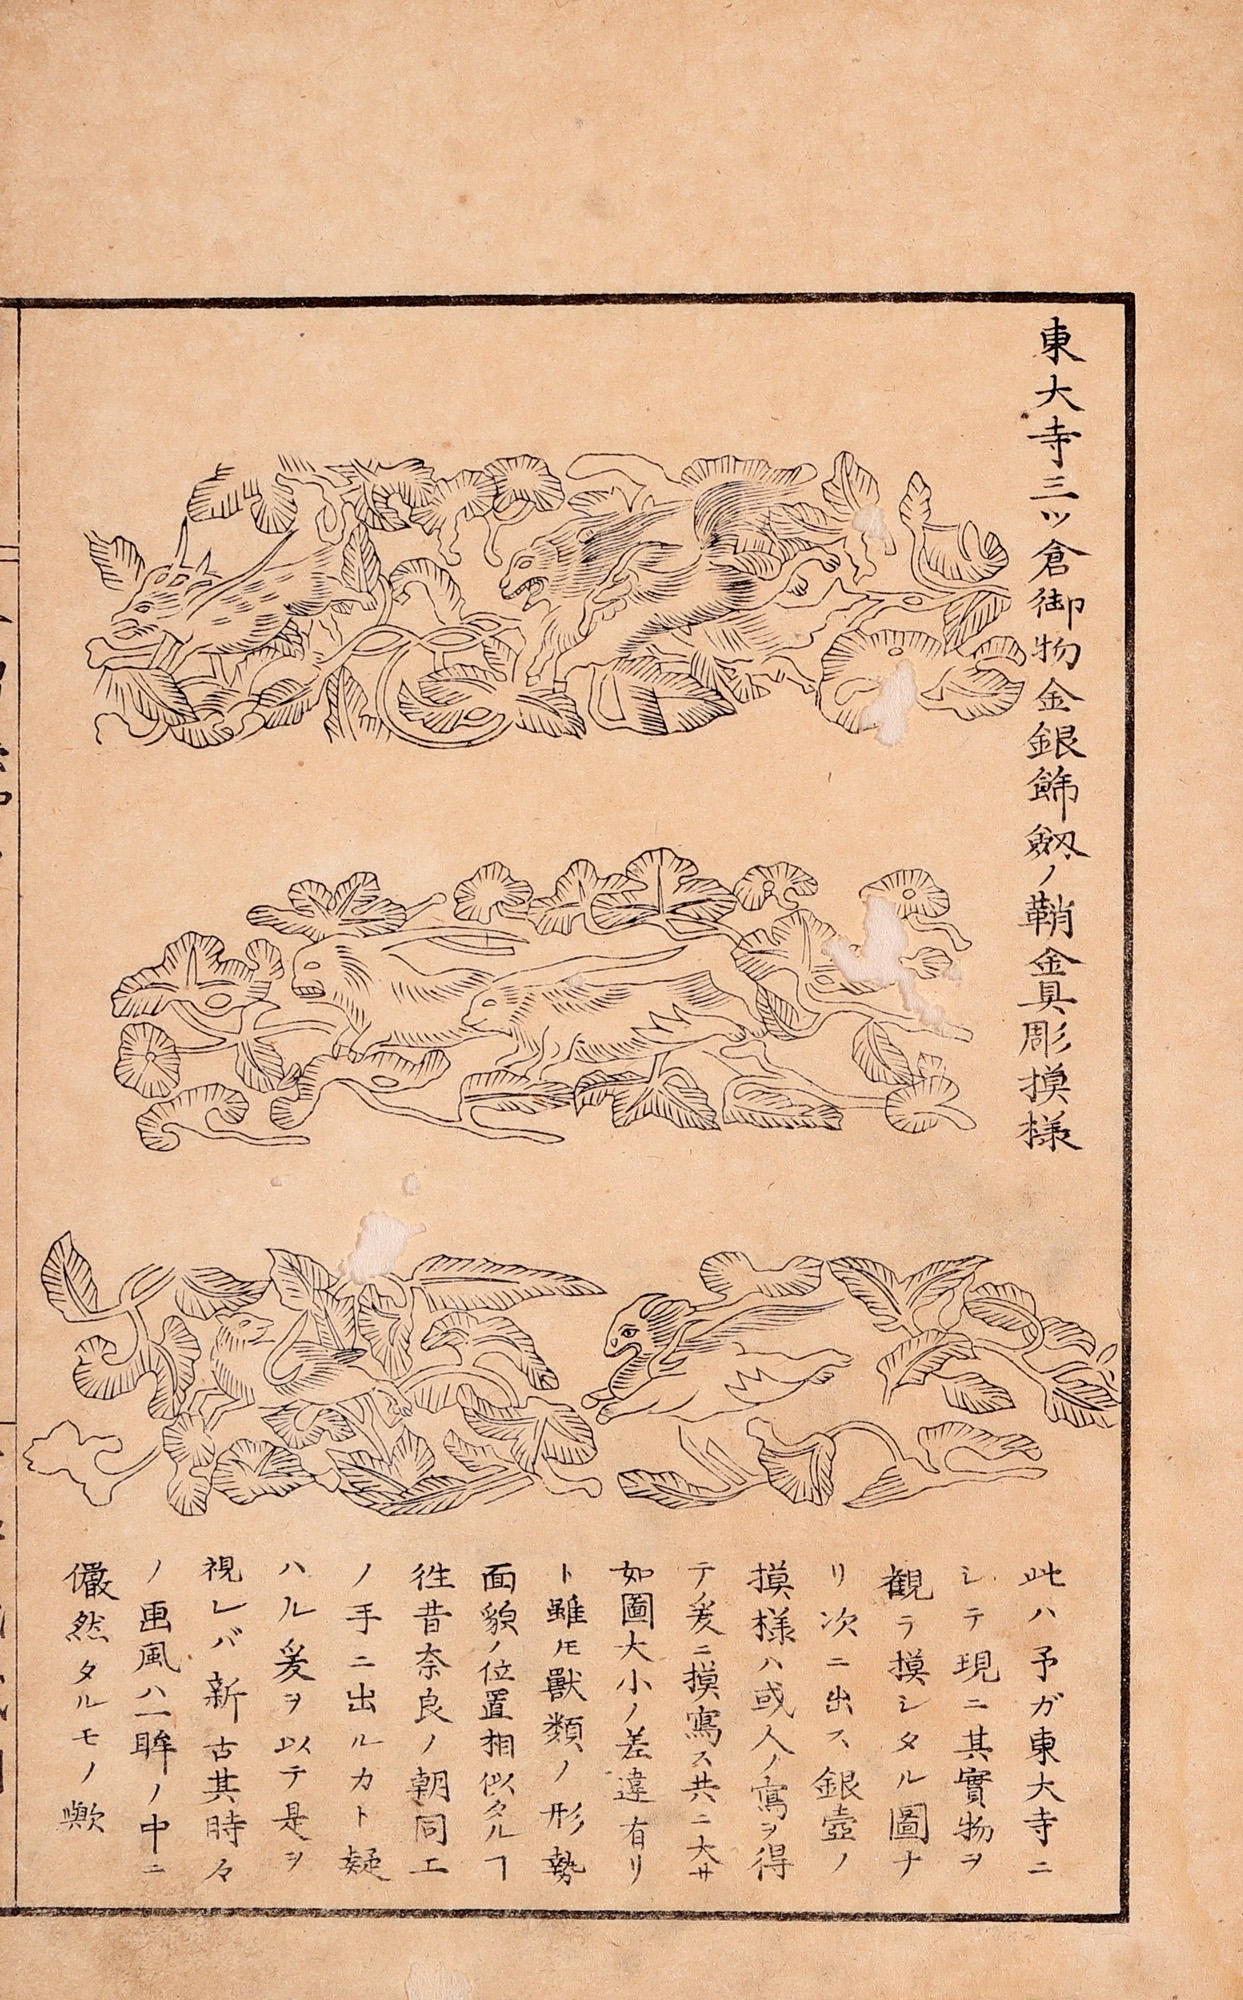 東大寺三ッ倉御物金銀飾剱ノ鞘金具彫摸様
此ハ予ガ東大寺ニ
シテ現ニ其實物ヲ
観ラ摸シタル圖ナ
リ次ニ出ス銀壺ノ
摸様ハ或人ノ寫ヲ得
テ爰ニ摸寫ス共ニ大サ
如圖大小ノ差違有リ
ト雖𪜈獸類ノ形勢
面貌ノ位置相似タルヿ
徃昔奈良ノ朝同工
ノ手ニ出ルカト疑
ハル爰ヲ以テ是ヲ
視レバ新古其時々
ノ画風ハ一眸ノ中ニ
儼然タルモノ歟